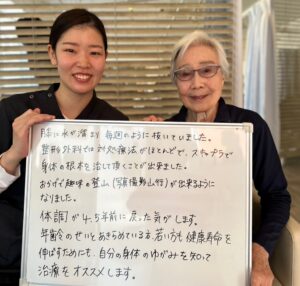 膝に水が溜まり毎週のように抜いていました。
整形外科では対処療法がほとんどで、スキップラブで
身体の根本を治して頂くことが出来ました。
おかげで趣味の登山(写真撮影山行)が出来るように
なりました。
体調が4.5年前に戻った気がします。
年齢のせいとあきらめている方、若い方も健康寿命を
伸ばすためにも、自分の身体のゆがみを知って
治療をオススメします。